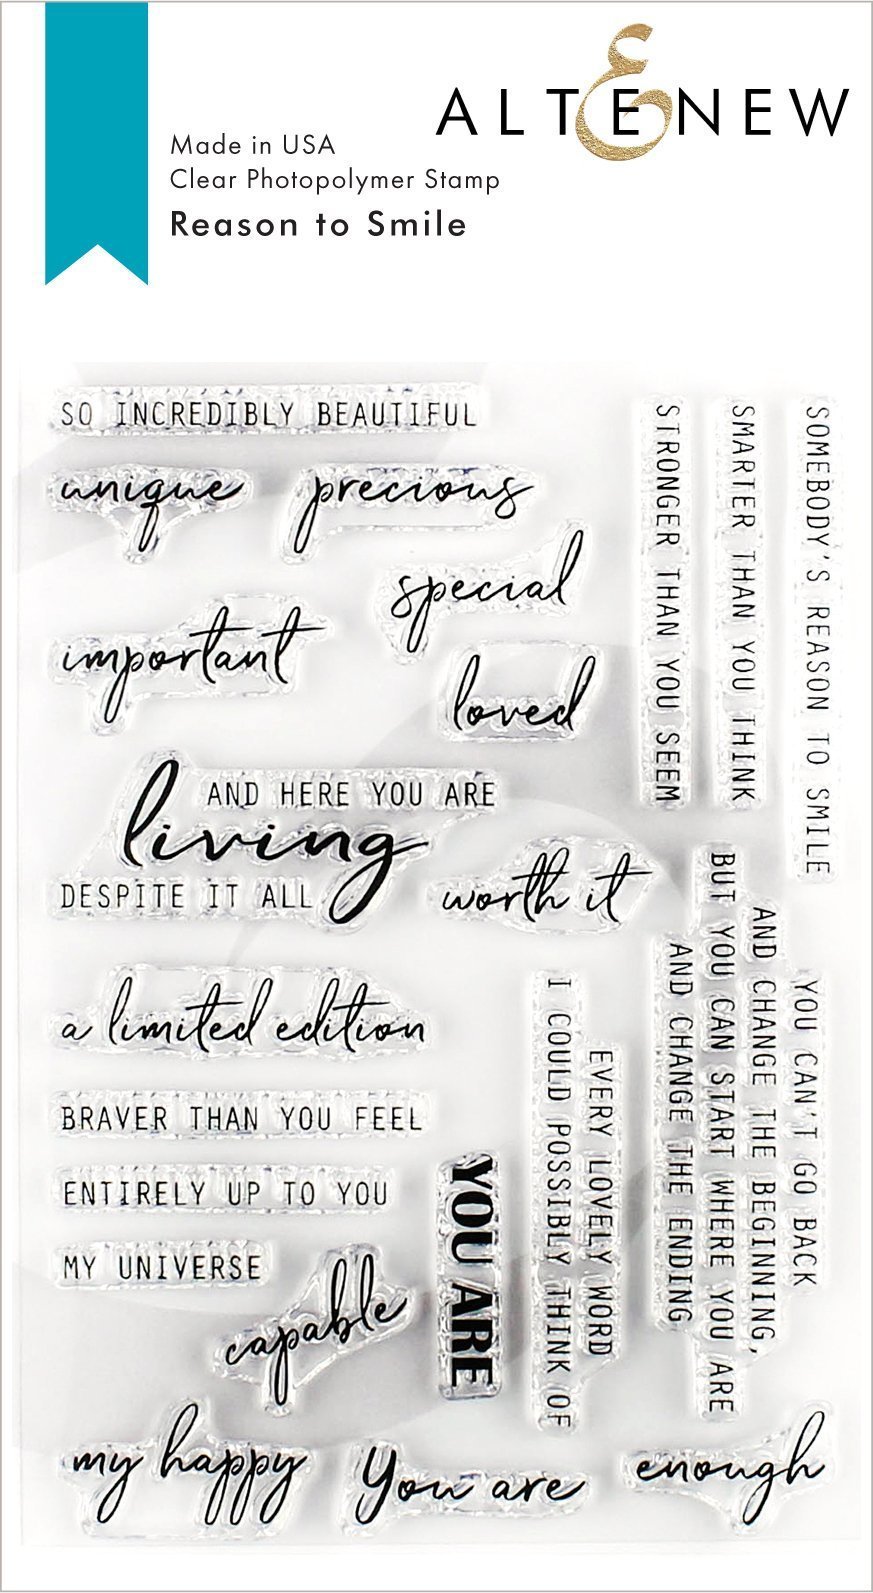 ALTENEW
Made in USA
Clear Photopolymer Stamp
Reason to Smile
SO INCREDIBLY BEAUTIFUL
unique
precious
special
important
loved
STRONGER THAN YOU SEEM
SMARTER THAN YOU THINK
SOMEBODY'S REASON TO SMILE
AND HERE YOU ARE
living
DESPITE IT ALL
worth it
a limited edition
BRAVER THAN YOU FEEL
ENTIRELY UP TO YOU
MY UNIVERSE
capable
YOU ARE
EVERY LOVELY WORD
I COULD POSSIBLY THINK OF
YOU CAN'T GO BACK
AND CHANGE THE BEGINNING,
BUT YOU CAN START WHERE YOU ARE
AND CHANGE THE ENDING
my happy
You are
enough